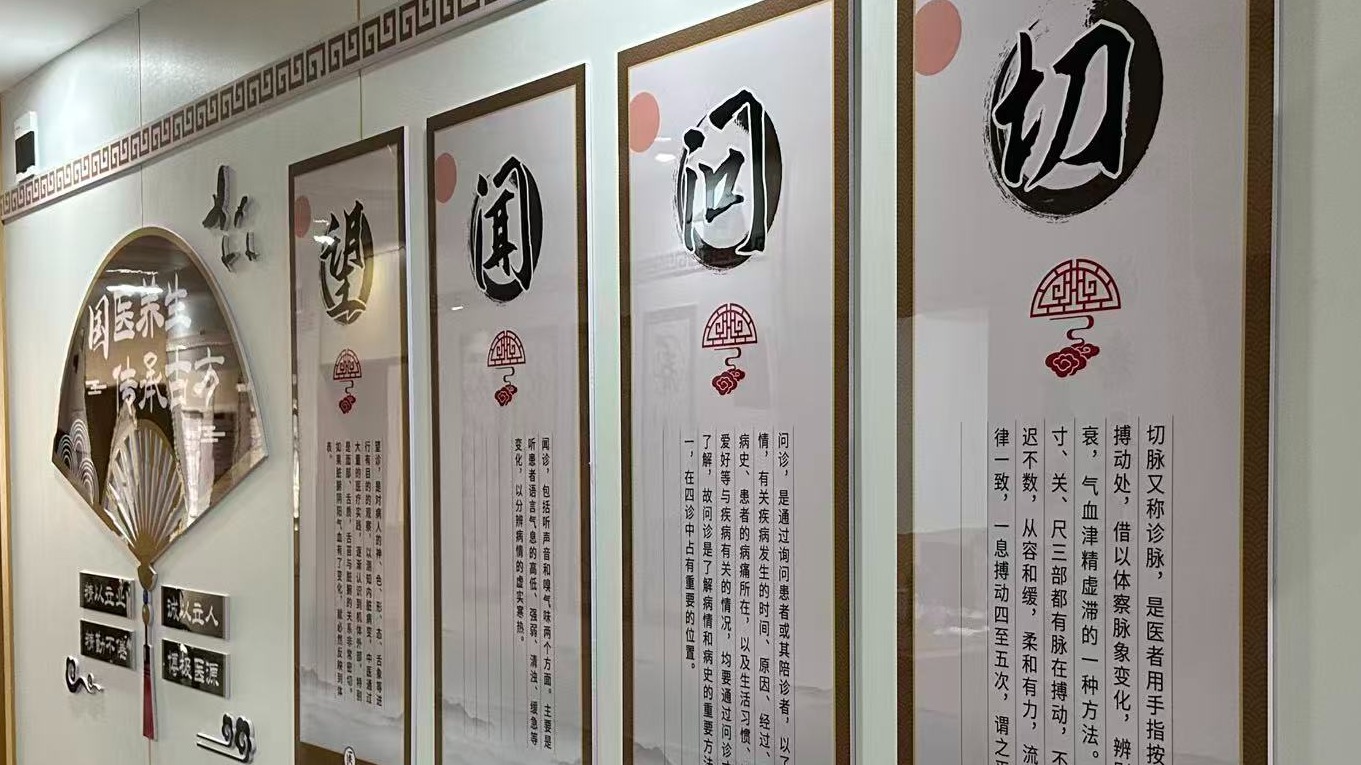 国医养生
传承古方
精以立业
诚以立人
精勤不倦
博极医源
望
望诊，是对病人的神、色、形、态、舌象等进
行有目的的观察，以测知内脏病变，中医通过
大量的医疗实践，逐渐认识到机体外部，特别
是面部、舌质，舌苔与脏腑的关系非常密切。
如果脏腑阴阳气血有了变化，就必然反映到体
表。
闻
闻诊，包括听声音和嗅气味两个方面。主要是
听患者语言气息的高低、强弱、清浊、缓急等
变化，以分辨病情的虚实寒热。
问
问诊，是通过询问患者或其陪诊者，以了
情，有关疾病发生的时间、原因、经过、
病史、患者的病痛所在，以及生活习惯、
爱好等与疾病有关的情况，均要通过问诊才
了解，故问诊是了解病情和病史的重要方法
一，在四诊中占有重要的位置。
切
切脉又称诊脉，是医者用手指按
搏动处，借以体察脉象变化，辨别
衰，气血津精虚滞的一种方法。
寸、关、尺三部都有脉在搏动，不
迟不数，从容和缓，柔和有力，流
律一致，一息搏动四至五次，谓之平